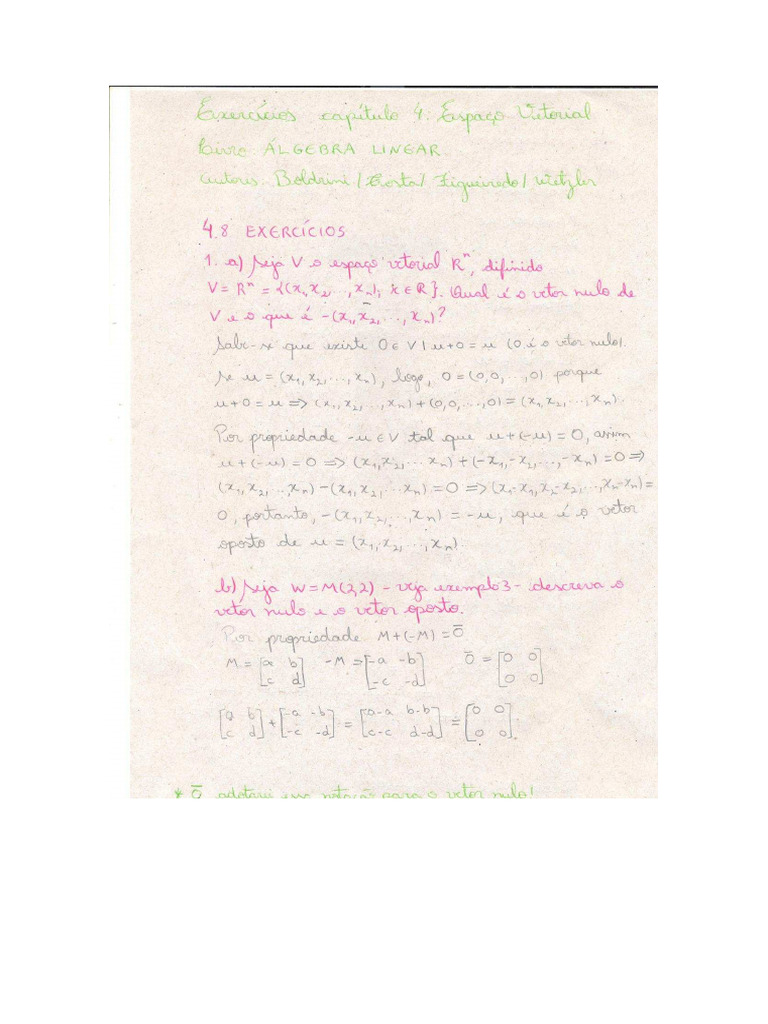 Exercícios capítulo 4. Espaço Vetorial
Livro ÁLGEBRA LINEAR.
autores. Boldrini/Costa/Figueiredo/Wetzler
4.8 EXERCÍCIOS
1. a) Seja V o espaço vetorial Rⁿ, difinido
V = Rⁿ = {(x₁, x₂, ..., xₙ); xᵢ ∈ R}. Qual é o vetor nulo de
V e o que é -(x₁, x₂, ..., xₙ)?
Sabe-se que existe 0 ∈ V | u+0 = u (0 é o vetor nulo).
Se u = (x₁, x₂, ..., xₙ), logo, 0 = (0,0, ..,0) porque
u+0 = u ⇒ (x₁, x₂, ..., xₙ) + (0,0, ...,0) = (x₁, x₂, ..., xₙ).
Por propriedade -u ∈ V tal que u+(-u) = 0, assim
u+(-u) = 0 ⇒ (x₁, x₂, ... xₙ) + (-x₁, -x₂, ..., -xₙ) = 0 ⇒
(x₁, x₂, ..., xₙ) - (x₁, x₂, ... xₙ) = 0 ⇒ (x₁-x₁, x₂-x₂, ..., xₙ-xₙ) =
0, portanto, -(x₁, x₂, ..., xₙ) = -u, que é o vetor
oposto de u = (x₁, x₂, ..., xₙ).
b) Seja W = M(2,2) - veja exemplo 3 - descreva o
vetor nulo e o vetor oposto.
Por propriedade M+(-M) = 0̄
M = [a b] -M ⇒ [-a -b] 0̄ = [0 0]
[c d] [-c -d] [0 0]
[a b] + [-a -b] = [a-a b-b] = [0 0]
[c d] [-c -d] [c-c d-d] [0 0].
* 0̄ adotarei notação para o vetor nulo!